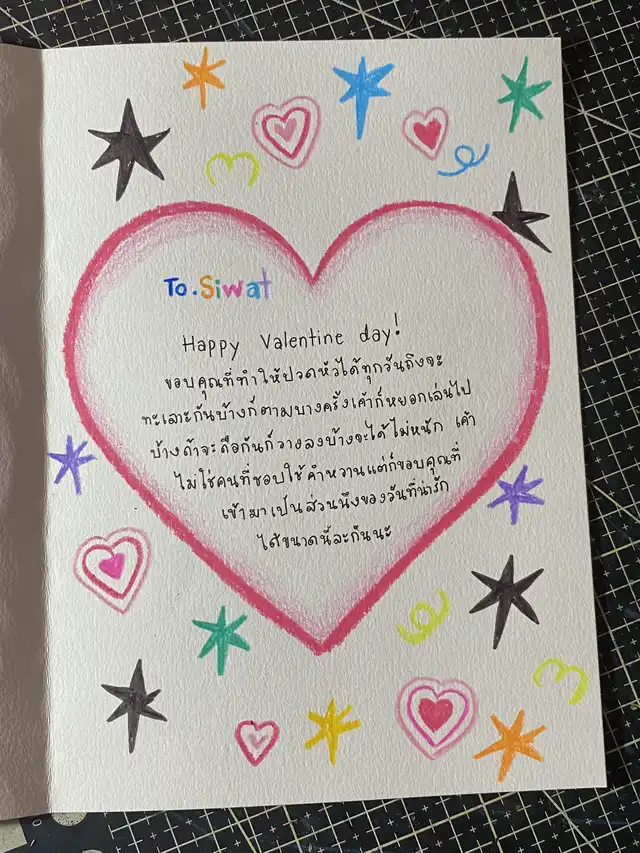 To. Siwat
Happy Valentine day!
ขอบคุณที่ทำให้ปวดหัวได้ทุกวันถึงจะ
ทะเลาะกันบ้างก็ตามบางครั้งเค้าก็หยอกเล่นไป
บ้างถ้าจะถือกันก็วางลงบ้างจะได้ไม่หนัก เค้า
ไม่ใช่คนที่ชอบใช้คำหวานแต่ก็ขอบคุณที่
เข้ามาเป็นส่วนนึงของวันที่น่ารัก
ได้ขนาดนี้ละกันนะ